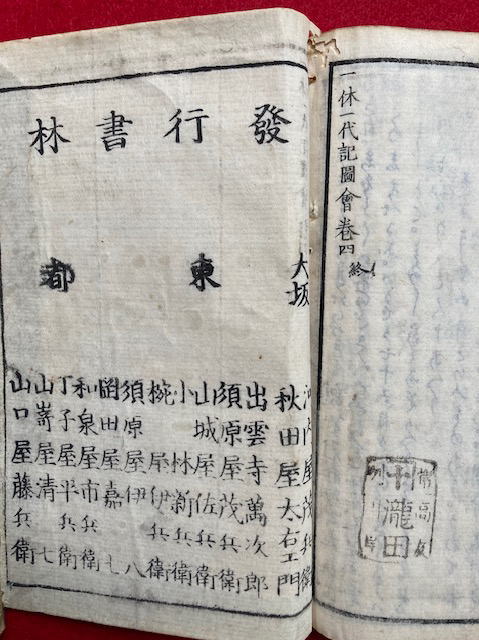 一休一代記圖會巻四終
瀧田
發行書林
大坂
河内屋茂兵衛
秋田屋太右エ門
東都
出雲寺萬次郎
須原屋茂兵衛
山城屋佐兵衛
小林新兵衛
椀屋伊兵衛
須原屋伊八
岡田屋嘉七
和泉屋市兵衛
丁子屋平兵衛
山嵜屋清七
山口屋藤兵衛